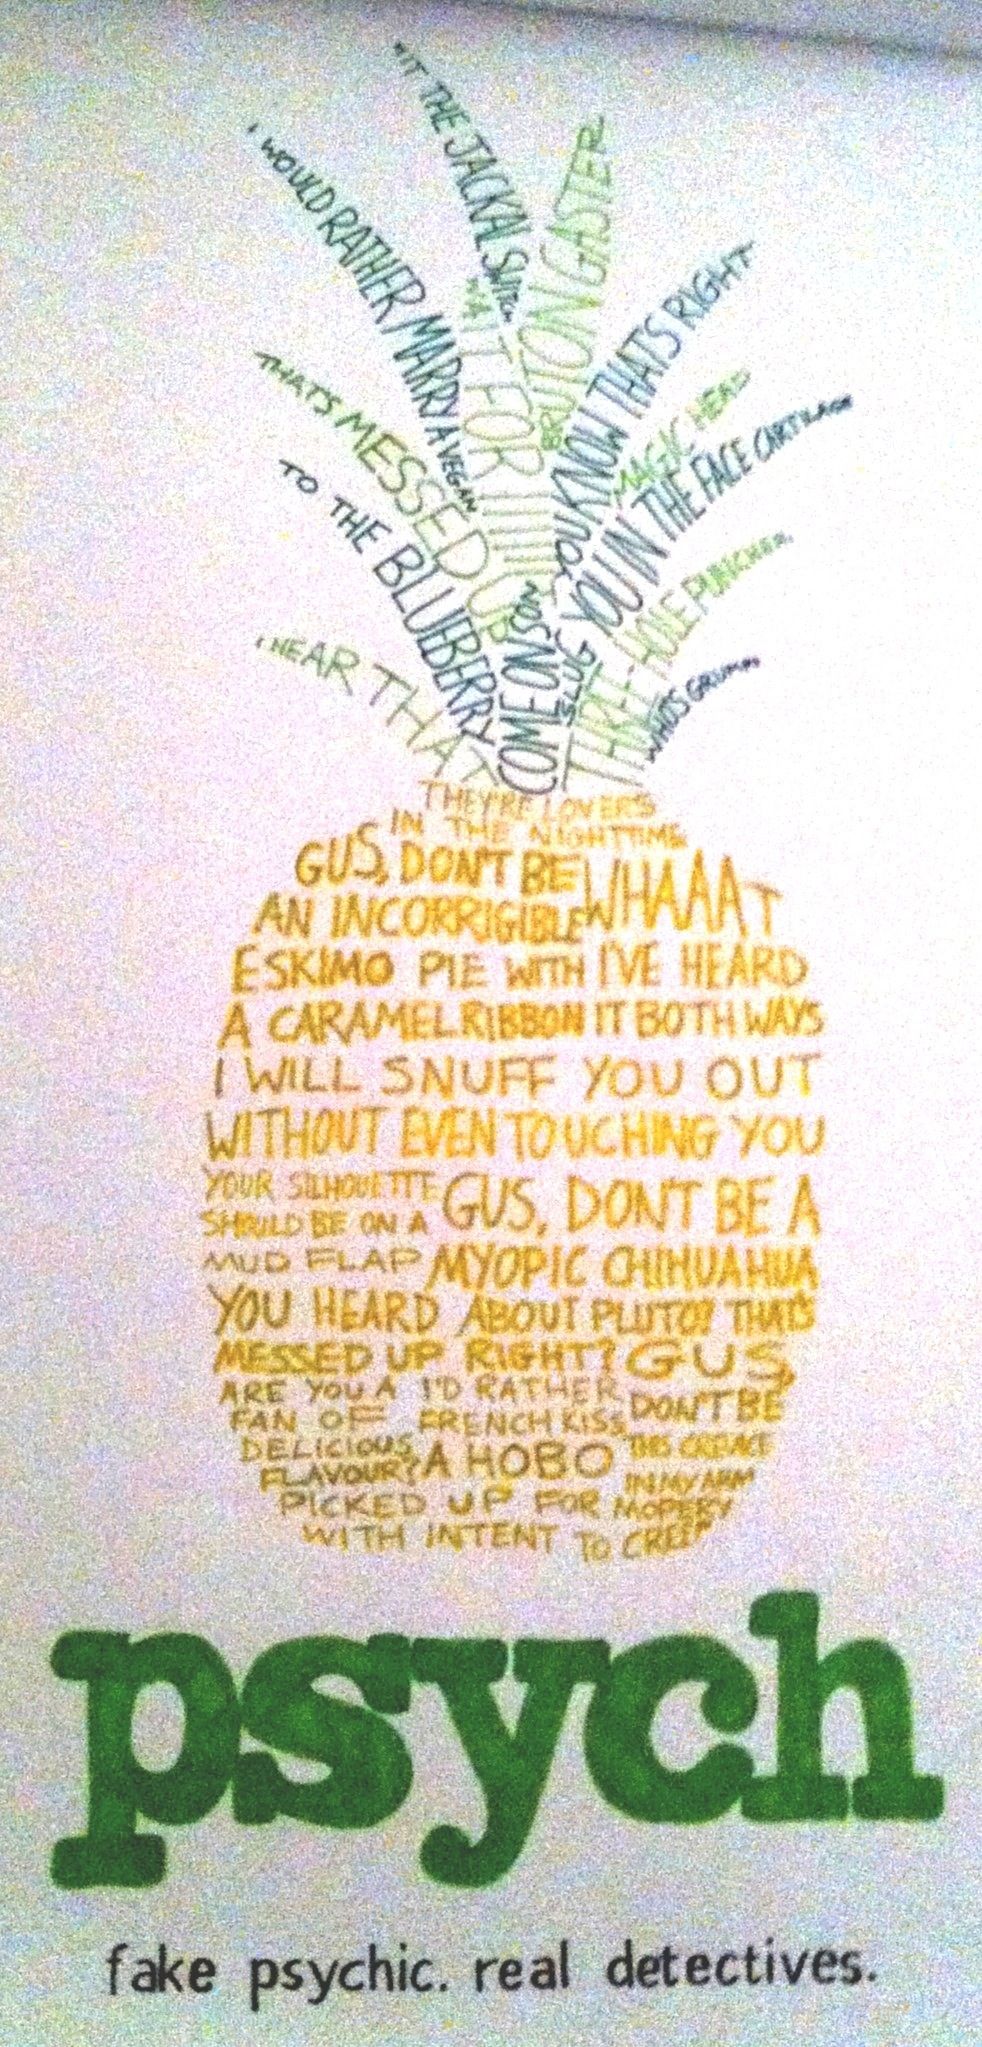 HIT THE JACKAL SWITCH
I WOULD RATHER MARRY A VEGAN
WAIT FOR IIIIII
BRUTON GASTER
YOU KNOW THATS RIGHT
THATS MESSED UP
MAGIC HEAD
SLUG YOU IN THE FACE CARTILAGE
TO THE BLUEBERRY
COME ON SON
THREE-HOLE PUNCHER
I HEAR THAT
THEY'RE LOVERS
IN THE NIGHTTIME
GUS, DON'T BE
AN INCORRIGIBLE
ESKIMO PIE WITH
A CARAMEL RIBBON
WHAAAT
I'VE HEARD
IT BOTH WAYS
I WILL SNUFF YOU OUT
WITHOUT EVEN TOUCHING YOU
YOUR SILHOUETTE
SHOULD BE ON A
MUD FLAP
GUS, DON'T BE A
MYOPIC CHIHUAHUA
YOU HEARD ABOUT PLUTO? THAT'S
MESSED UP RIGHT?
GUS,
DON'T BE
THIS CREVACE
IN MY ARM
ARE YOU A
FAN OF
DELICIOUS
FLAVOUR?
I'D RATHER
FRENCH KISS
A HOBO
PICKED UP FOR MOPERY
WITH INTENT TO CREEP
psych
fake psychic. real detectives.